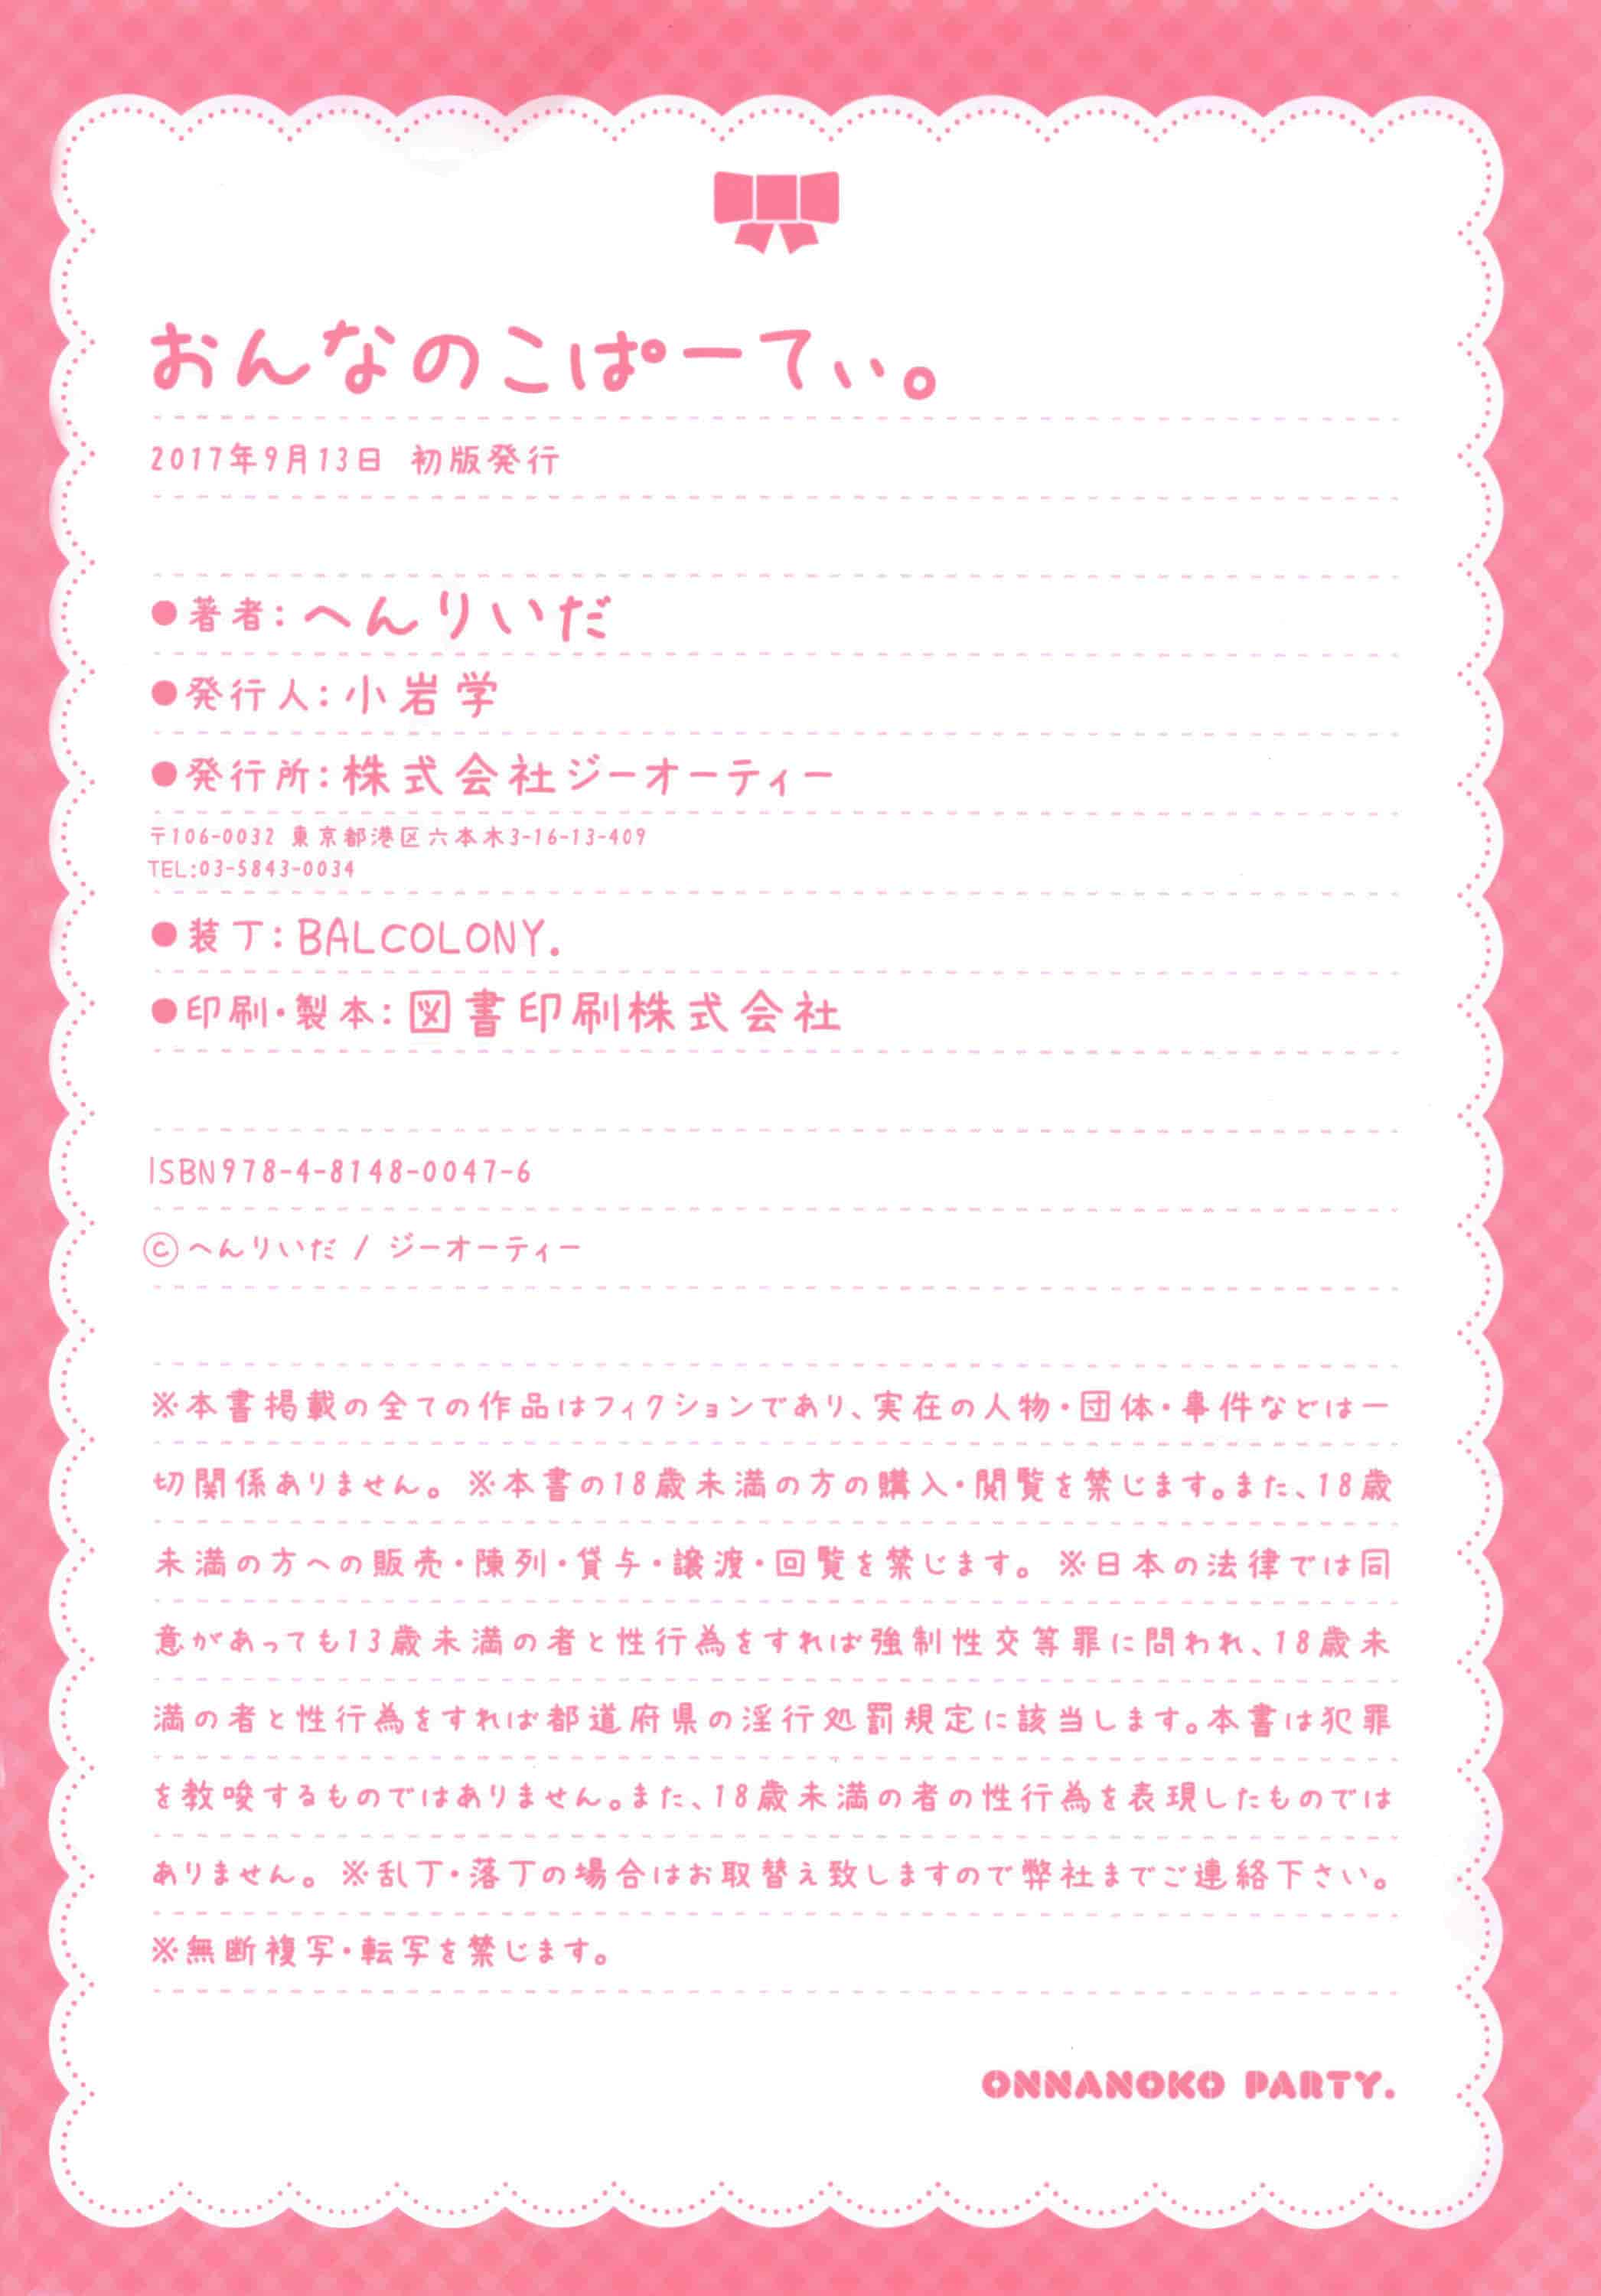 おんなのこぱーてぃ。
2017年9月13日 初版発行
●著者：へんりいだ
●発行人：小岩学
●発行所：株式会社ジーオーティー
〒106-0032 東京都港区六本木3-16-13-409
TEL:03-5843-0034
●装丁：BALCOLONY.
●印刷・製本：図書印刷株式会社
ISBN978-4-8148-0047-6
©へんりいだ / ジーオーティー
※本書掲載の全ての作品はフィクションであり、実在の人物・団体・事件などは一
切関係ありません。※本書の18歳未満の方の購入・閲覧を禁じます。また、18歳
未満の方への販売・陳列・貸与・譲渡・回覧を禁じます。※日本の法律では同
意があっても13歳未満の者と性行為をすれば強制性交等罪に問われ、18歳未
満の者と性行為をすれば都道府県の淫行処罰規定に該当します。本書は犯罪
を教唆するものではありません。また、18歳未満の者の性行為を表現したものでは
ありません。※乱丁・落丁の場合はお取替え致しますので弊社までご連絡下さい。
※無断複写・転写を禁じます。
ONNANOKO PARTY.